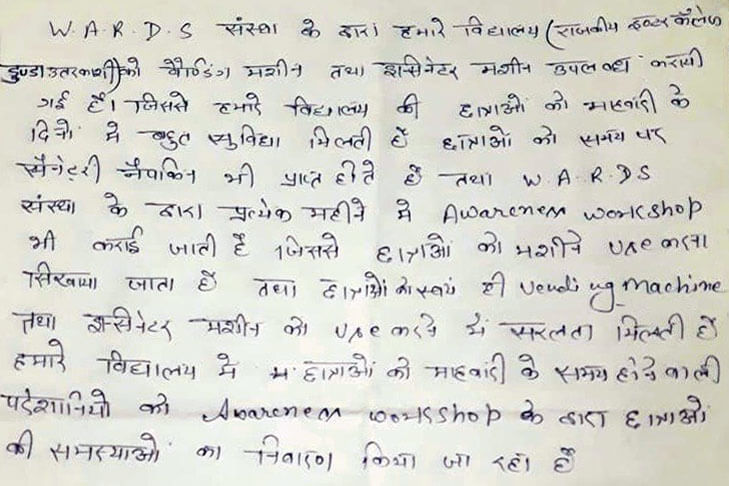 W.A.R.D.S संस्था के द्वारा हमारे विद्यालय (राजकीय इण्टर कॉलेज
डुण्डा उत्तरकाशी) को वैण्डिंग मशीन तथा इन्सीनेटर मशीन उपलब्ध करायी
गई है। जिससे हमारे विद्यालय की छात्राओं को माहवारी के
दिनों में बहुत सुविधा मिलती है छात्राओं को समय पर
सैनेट्री नैपकिन भी प्राप्त होते है तथा W.A.R.DS
संस्था के द्वारा प्रत्येक महीने में Awareness workshop
भी कराई जाती है जिससे छात्राओं को मशीने use करना
सिखाया जाता है तथा छात्राओं को स्वयं ही Vending Machine
तथा इन्सीनेटर मशीन को use करने में सरलता मिलती है
हमारे विद्यालय में छात्राओं को माहवारी के समय होने वाली
परेशानियो को Awareness workshop के द्वारा छात्राओं
की समस्याओं का निवारण किया जा रहा है